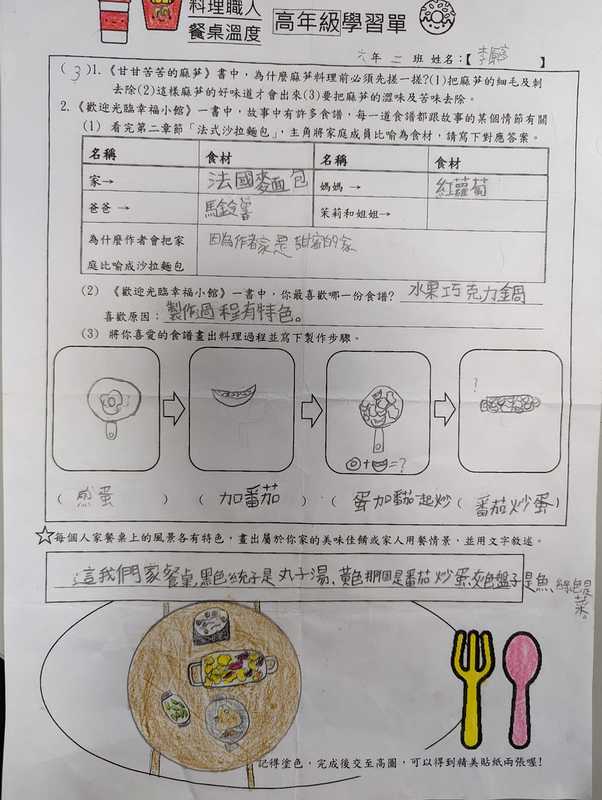 料理職人
餐桌溫度 高年級學習單
六年二班 姓名:【李】
(3)1.《甘甘苦苦的麻笋》書中,為什麼麻笋料理前必須先搓一搓?(1)把麻笋的細毛及刺
去除(2)這樣麻笋的好味道才會出來(3)要把麻笋的澀味及苦味去除。
2.《歡迎光臨幸福小館》一書中,故事中有許多食譜,每一道食譜都跟故事的某個情節有關
(1) 看完第二章節「法式沙拉麵包」,主角將家庭成員比喻為食材,請寫下對應答案。
名稱 食材 名稱 食材
家→ 法國麥面包 媽媽→ 紅蘿蔔
爸爸→ 馬鈴薯 茉莉和姐姐→
為什麼作者會把家 因為作者家是甜蜜的家
庭比喻成沙拉麵包
(2) 《歡迎光臨幸福小館》一書中,你最喜歡哪一份食譜? 水果巧克力鍋
喜歡原因:製作過程有特色。
(3) 將你喜愛的食譜畫出料理過程並寫下製作步驟。
?
+ =?
(煎蛋) (加番茄) (蛋加番茄一起炒) (番茄炒蛋)
☆每個人家餐桌上的風景各有特色,畫出屬於你家的美味佳餚或家人用餐情景,並用文字敘述。
這我們家餐桌,黑色統子是丸子湯、黃色那個是番茄炒蛋、灰色盤子是魚、綠色是菜。
記得塗色,完成後交至高圖,可以得到精美貼紙兩張喔!